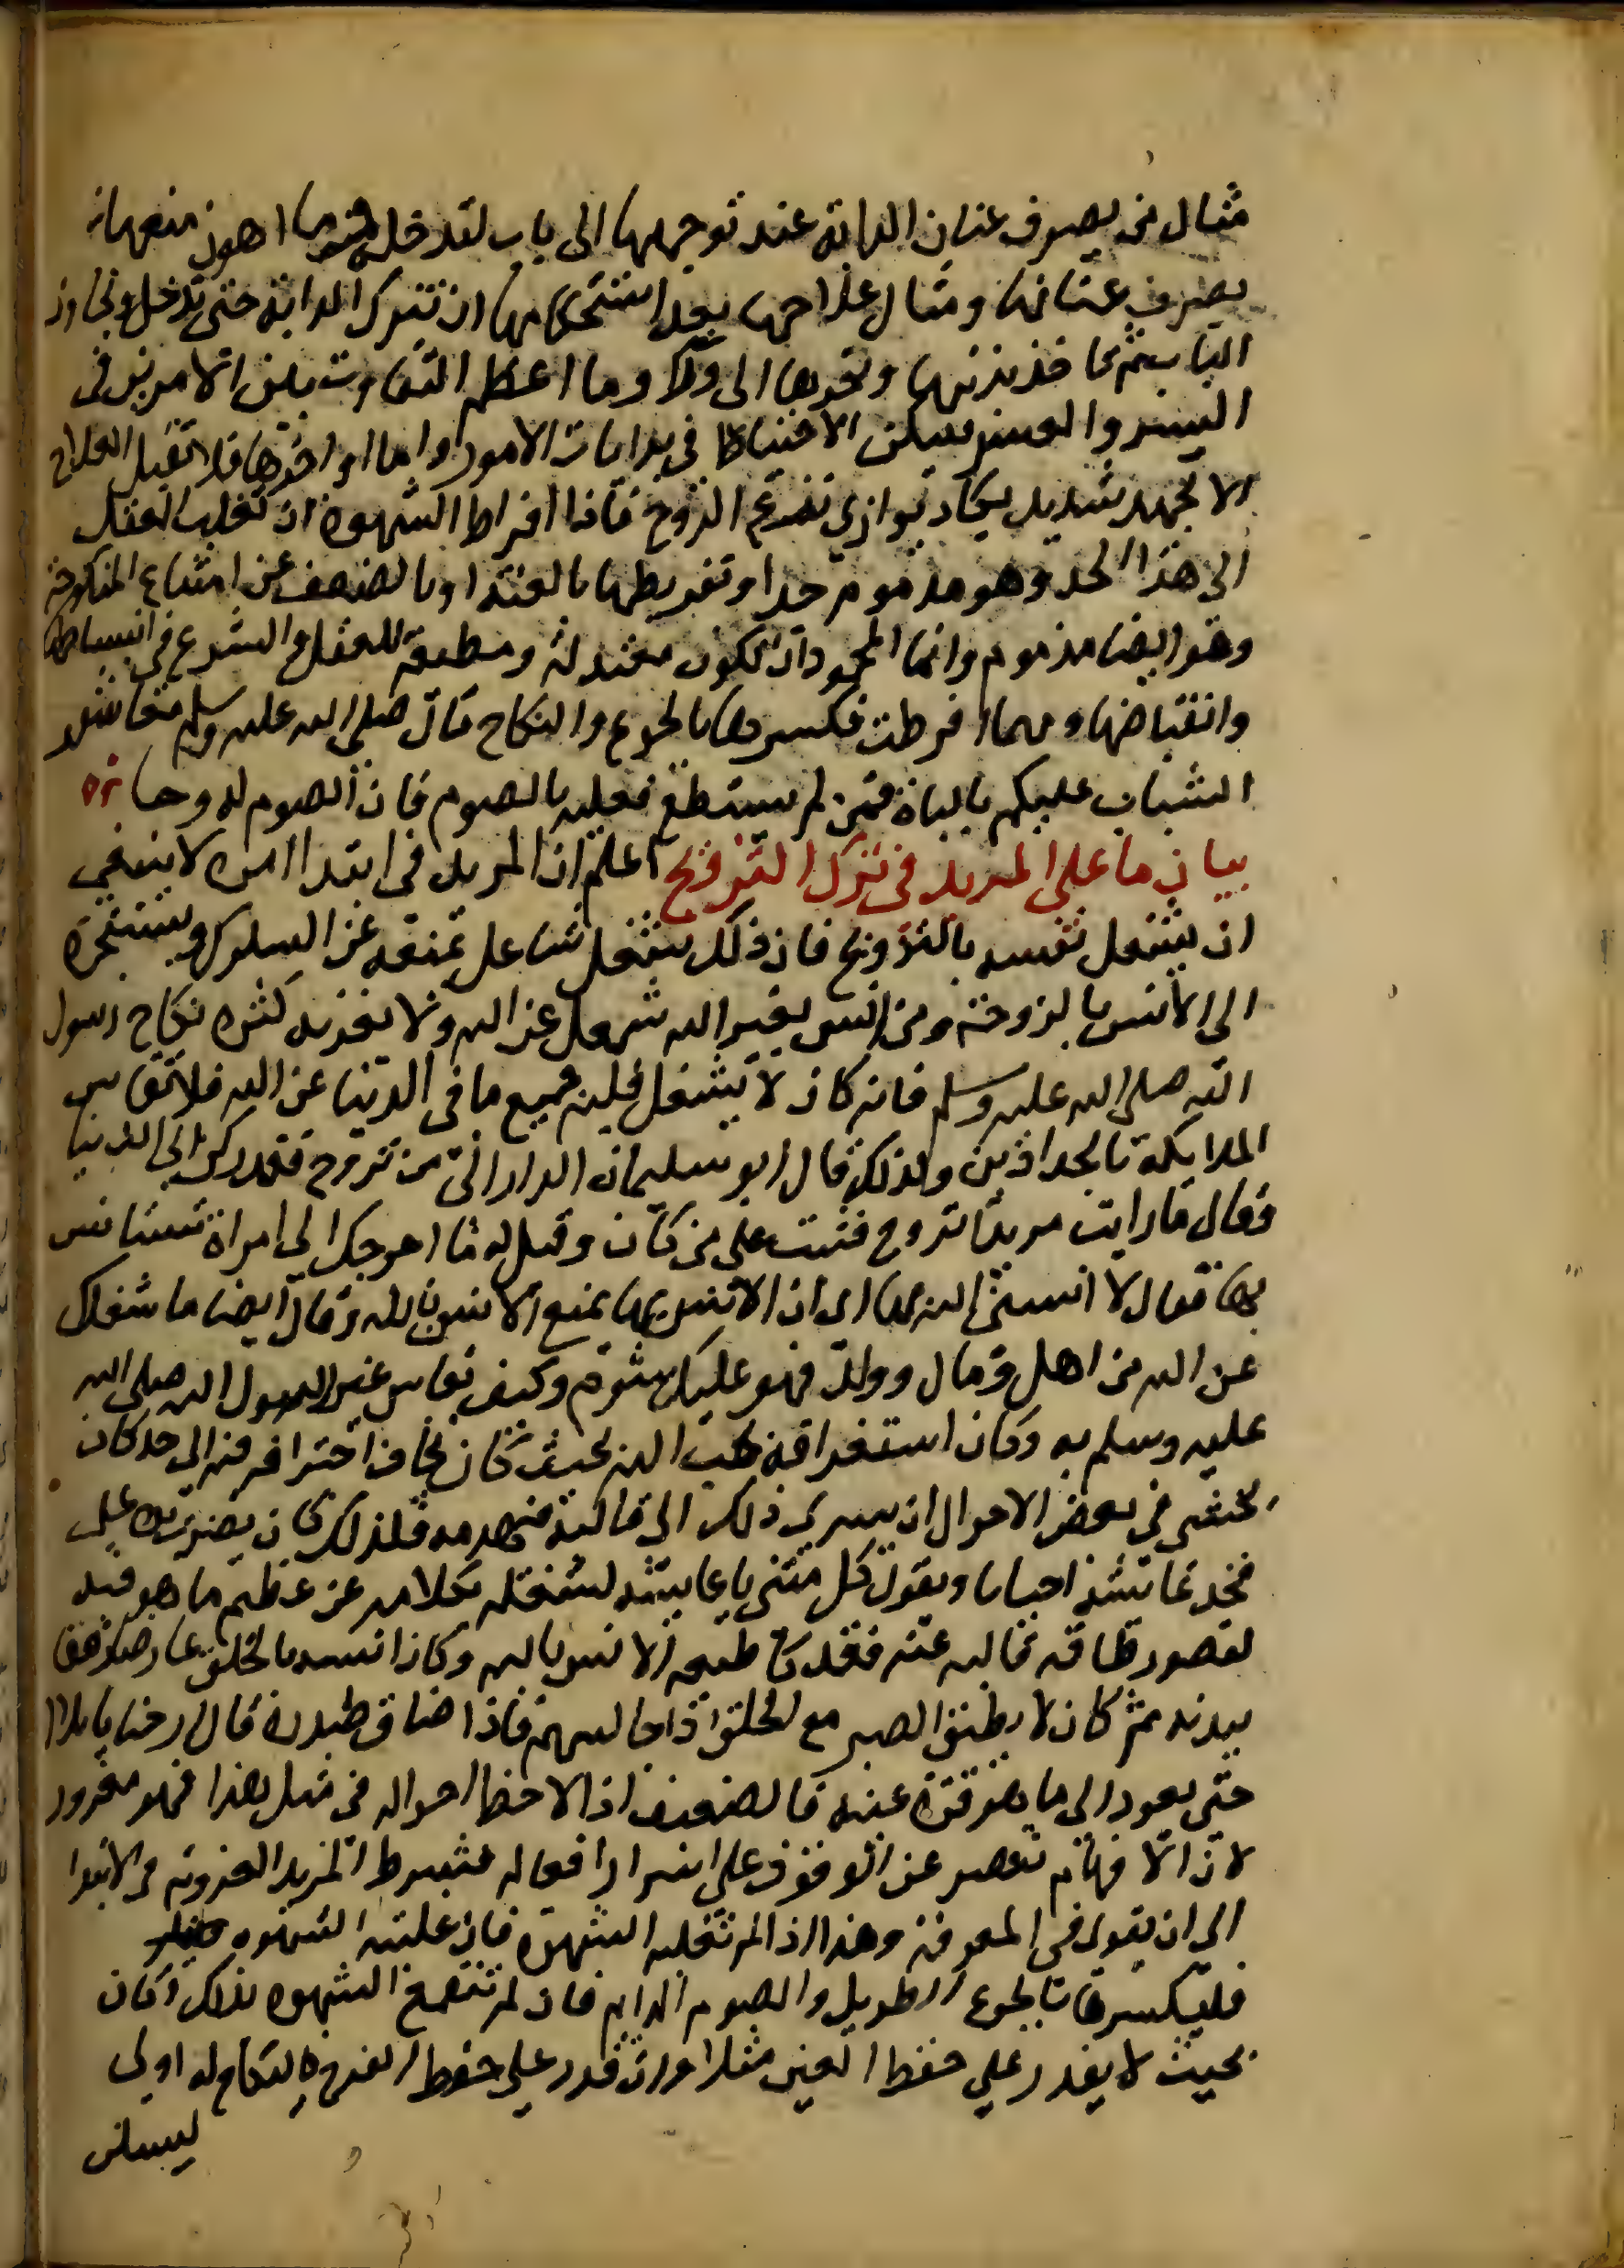 مثال من يصرف عنان الدابة عند توجهها الى باب لتدخله وما اهون منعها
بصرف عنانها ومثال علاجها بعد استحكامها ان تترك الدابة حتى تدخل وتجاوز
الباب ثم تاخذ بذنبها وتجرها الى ورا وما اعظم التفاوت بين الامرين فى
اليسر والعسر فليكن الاحتياط في بدايات الامور واما اواخرها فلا تقبل العلاج
الا بجهد شديد يكاد يوازى نزع الروح فاذا افراط الشهوة ان تغلب العقل
الى هذا الحد وهو مذموم جدا وتفريطها بالعنة او بالضعف عن امتاع المنكوحة
وهو ايضا مذموم وانما المحمود ان تكون معتدلة ومطيعة للعقل والشرع في انبساطها
وانقباضها ومهما افرطت فكسرها بالجوع والنكاح قال صلى الله عليه وسلم معاشر
الشباب عليكم بالباة فمن لم يستطع فعليه بالصوم فان الصوم له وجا
بيان ما على المريد فى ترك التزويج اعلم ان المريد فى ابتدا امره لا ينبغي
ان يشغل نفسه بالتزويج فان ذلك شغل شاغل يمنعه عن السلوك ويستجره
الى الانس بالزوجة ومن انس بغير الله شغل عن الله ولا يغرنه كثرة نكاح رسول
الله صلى الله عليه وسلم فانه كان لا يشغل قلبه جميع ما فى الدنيا عن الله فلا تقاس
الملايكة بالحدادين ولذلك قال ابو سليمان الدارانى من تزوج فقد ركن الى الدنيا
وقال ما رايت مريدا تزوج فثبت على ما كان وقيل له ما احوجك الى امراة تستانس
بها فقال لا انسنى الله بها اى ان الانس بها يمنع الانس بالله وقال ايضا ما شغلك
عن الله من اهل ومال وولد فهو عليك مشوم وكيف يقاس غير رسول الله صلى الله
عليه وسلم به وكان استغراقه بحب الله بحيث كان يخاف احتراقه فيه الى حد كان
يخشى في بعض الاحوال ان يسرى ذلك الى قالبه فيهدمه فلذلك كان يضرب يده على
فخذ عايشة احيانا ويقول كلمينى يا عايشة لتشغله بكلامها عن عظيم ما هو فيه
لقصور طاقة قالبه عنه فقد كان طبعه الانس بالله وكان انسه بالخلق عارضا رفقا
ببدنه ثم كان لا يطيق الصبر مع الخلق اذا جالسهم فاذا ضاق صدره قال ارحنا يا بلال
حتى يعود الى ما هو قرة عينه فالضعيف اذا لاحظ احواله فى مثل هذا فهو مغرور
لان الافهام تقصر عن الوقوف على اسرار افعاله فشرط المريد العزوبة فى الابتدا
الى ان يقوى فى المعرفة وهذا اذا لم تغلبه الشهوة فان غلبته الشهوه
فليكسرها بالجوع الطويل والصوم الدايم فان لم تنقمع الشهوه بذلك وكان
بحيث لا يقدر على حفظ العين مثلا وان قدر على حفظ الفرج فالنكاح له اولى
ليسكن